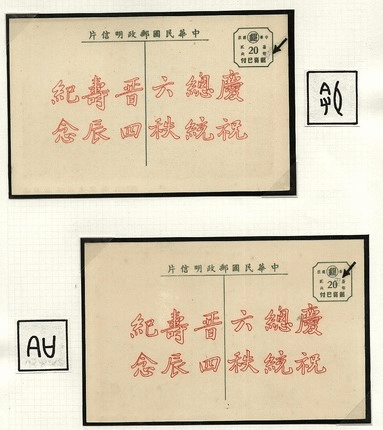 中華民國郵政明信片
20
郵資已付
慶祝
總統
六秩
晋四
壽辰
紀念
中華民國郵政明信片
20
郵資已付
慶祝
總統
六秩
晋四
壽辰
紀念